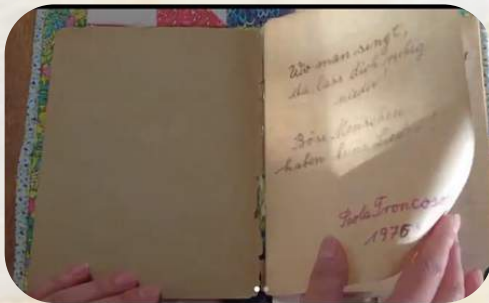 Wo man singt,
da lass dich ruhig
nieder!
Böse Menschen
haben keine Lieder!
Troncoso
1976